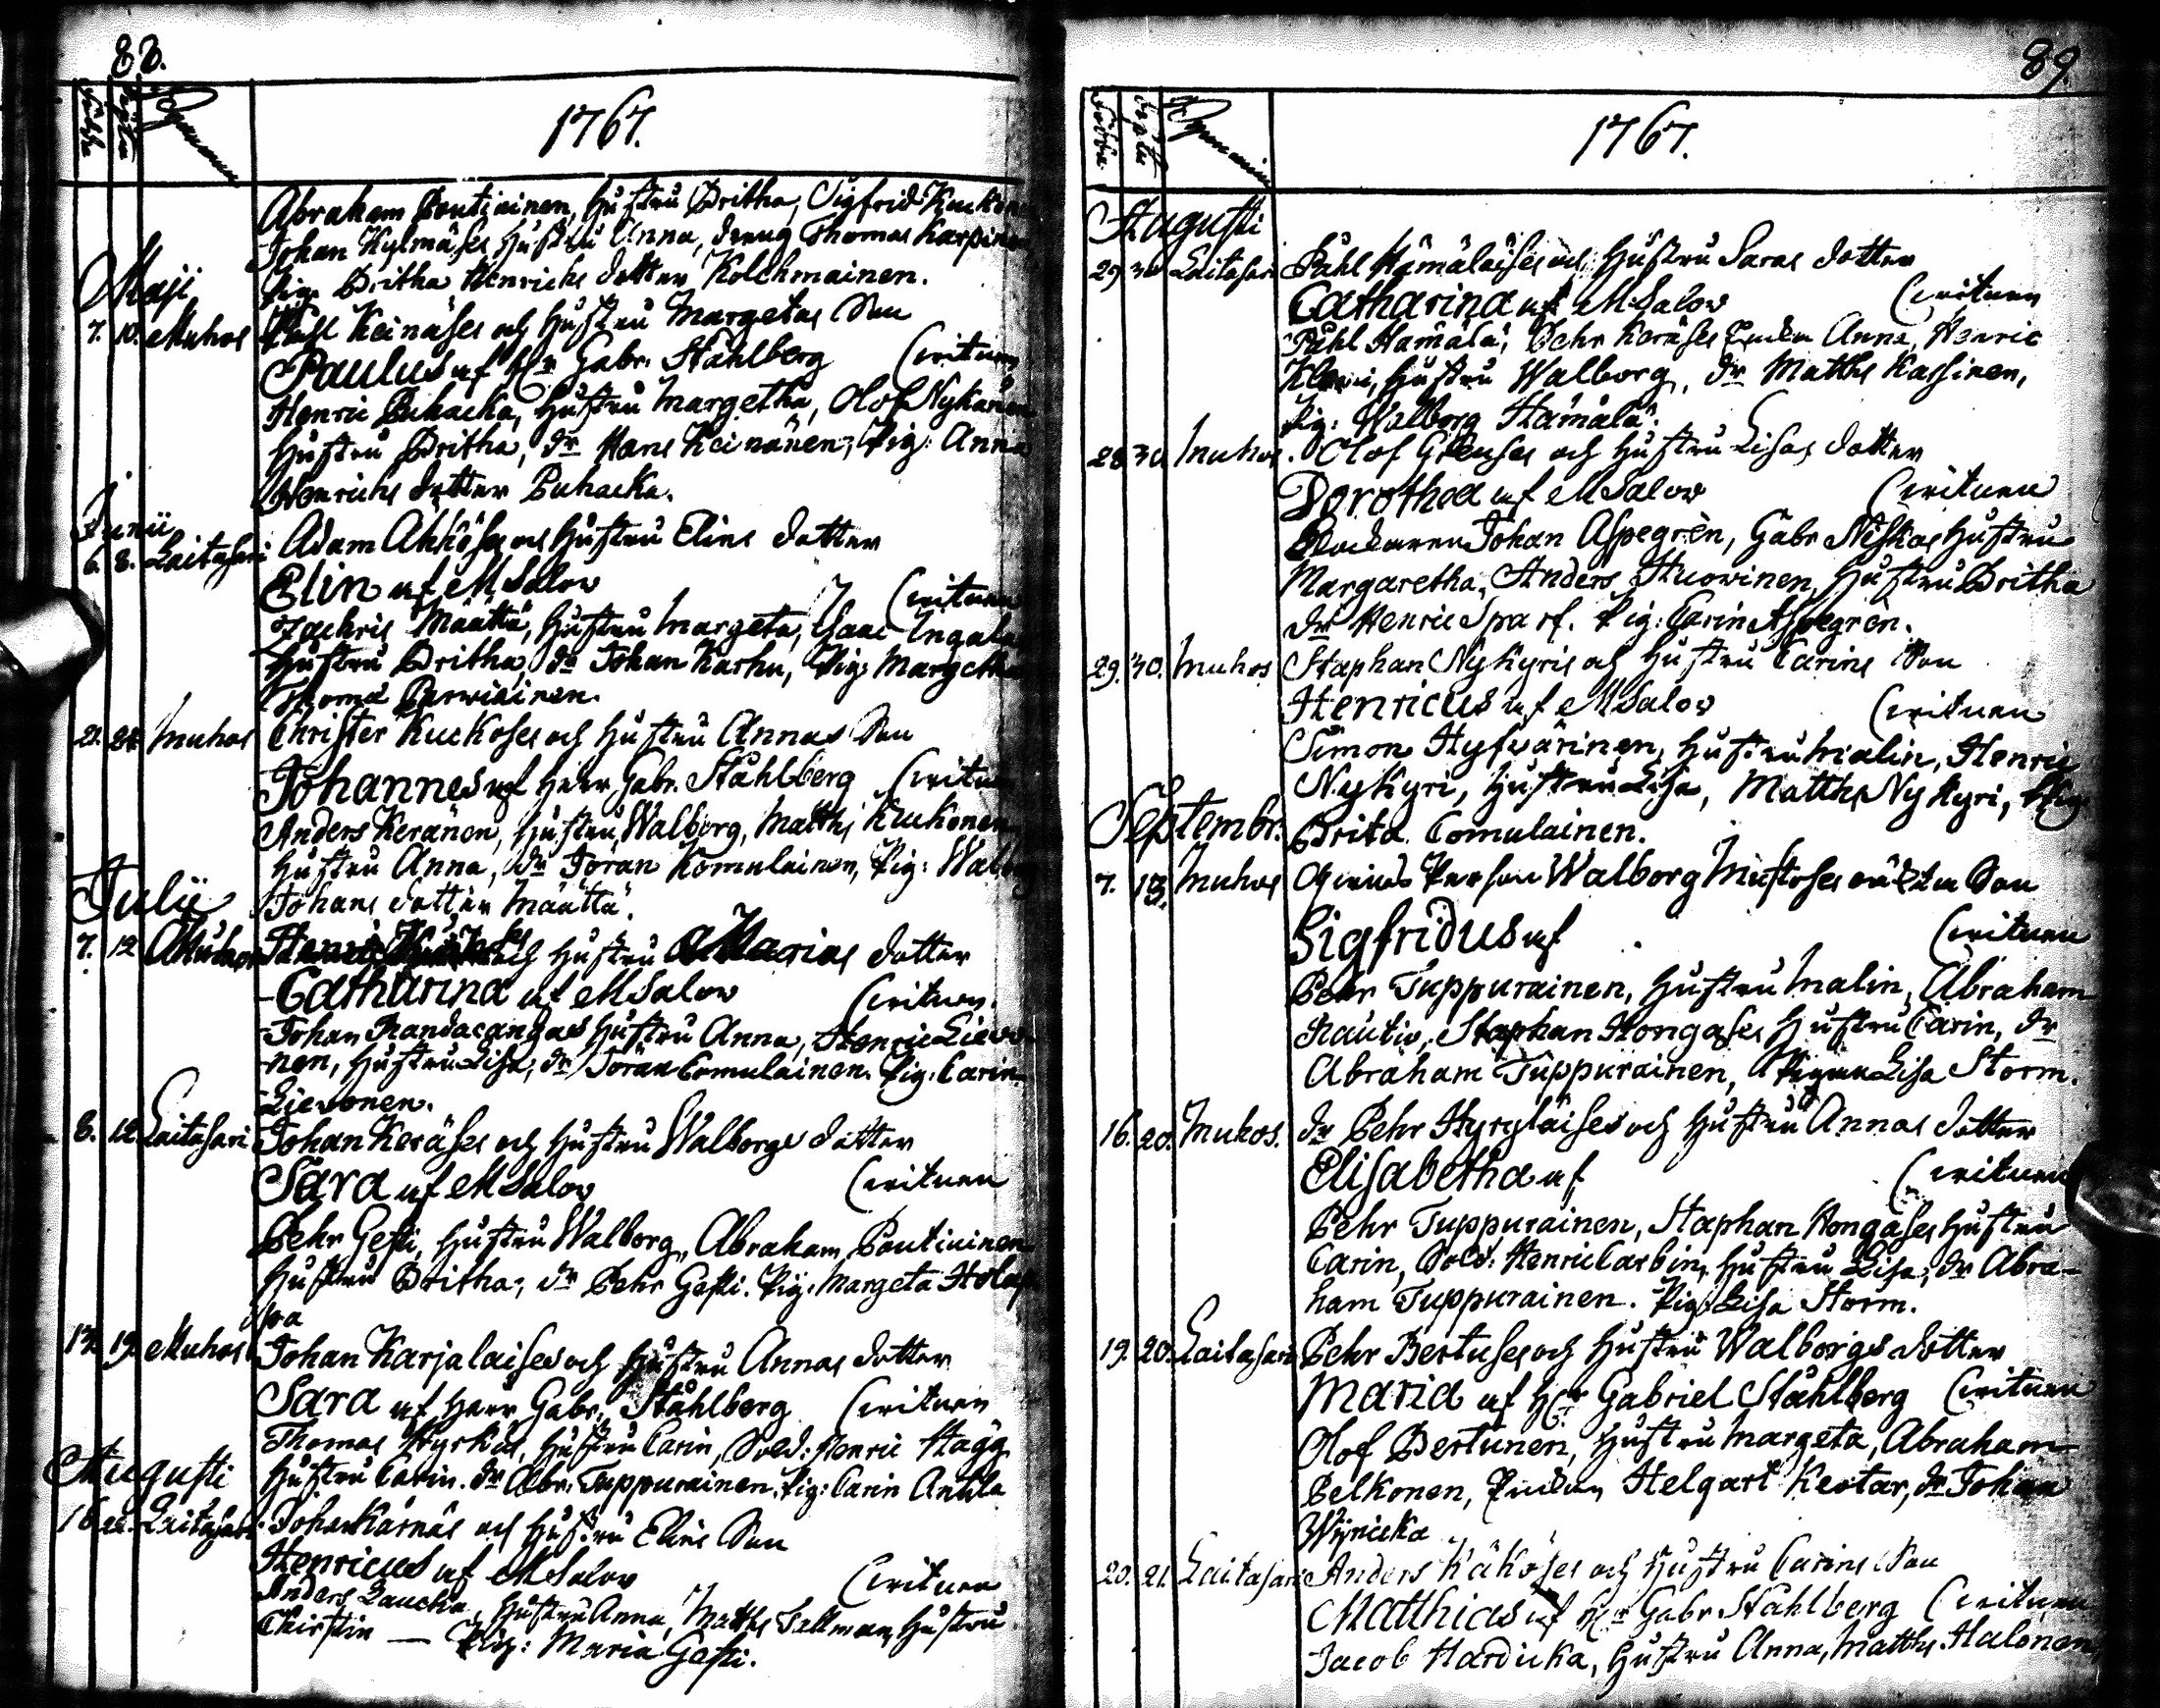 88.
Födde
Döpte
Byanamn
1767.
Abraham Poutiainen, hustru Britha, Sigfrid Kuckonen
Johan Kylmäses hustru Anna, dreng Thomas Karpinen
Pig. Britha Henrichs dotter Kolehmainen.
Maji
7. 10. Muhos Påhl Keinäses och hustru Margetas Son
Paulus af Hr Gabr. Ståhlberg Crituen
Henric Puhacka, hustru Margetha, Olof Nykänen
hustru Britha, dr Hans Keinänen, Pig: Anna
Henrichs dotter Puhacka.
Junii
6. 8. Laitasari Adam Ahköses och hustru Elins dotter
Elin af M Salov Crituen
Zachris Määttä, hustru Margeta, Isaac
hustru Britha, dr Johan Karhu, Pig: Margetha
Thomæ Parwiainen.
21. 24 Muhos Christer Kuckoses och hustru Annas Son
Johannes af Herr Gabr. Ståhlberg Crituen
Anders Keränen, hustru Walborg, Matths Kuckonen
hustru Anna, dr Jöran Komulainen, Pig: Walborg
Johans dotter Määttä.
Julii
7. 12 Muhos Henric och hustru Marias dotter
Catharina af M Salov Crituen.
Johan Randacangas hustru Anna, Henric Liewo-
nen, hustru Lisa, dr Jöran Comulainen. Pig: Carin
Liewonen.
8. 12 Laitasari Johan Keräses och hustru Walborgs dotter
Sara af M Salov Crituen
Pehr Gesti, hustru Walborg, Abraham Poutiainen
hustru Britha, dr Pehr Gesti. Pig: Margeta Holap-
pa
13. 19. Muhos Johan Karjalaises och hustru Annas dotter
Sara af Herr Gabr. Ståhlberg Crituen
Thomas Hyrkäs, hustru Carin, Sold: Henric Hägg
hustru Carin. dr Abr: Tuppurainen. Pig: Carin Anhla
Augusti
16 22. Laitasari Johan Kärnäs och hustru Elins Son
Henricus af M Salov Crituen
Anders Laucka, hustru Anna, Matths Tallman, hustru
Chirstin — Pig: Maria Gesti.
89.
Födde
Döpte
Byanamn
1767.
Augusti
29 30 Laitasari Påhl Hämäläises och hustru Saras dotter
Catharina af M Salov Crituen
Påhl Hämälä, Pehr Keräses Enckan Anna, Henric
hustru Walborg, dr Matths Kassinen,
Pig: Walborg Hämälä.
28 30 Muhos. Olof och hustru Lisas dotter
Dorothea af M Salov Crituen
Klockaren Johan Aspegrèn, Gabr Niskas hustru
Margaretha, Anders Huowinen, hustru Britha
dr Henric Sparf. Pig: Carin Aspegrèn.
29. 30. Muhos Staphan Nykyris och hustru Carins Son
Henricus af M Salov Crituen
Simon Hyfwärinen, hustru Malin, Henric
Nykyri, hustru Lisa, Matths Nykyri, Pig:
Septembr. Brita Comulainen.
7. 13. Muhos Qwinds Person Walborg Mustoses oäckta Son
Sigfridus af Crituen
Pehr Tuppurainen, hustru Malin, Abraham
Rautio, Staphan Hongases hustru Carin, dr
Abraham Tuppurainen, Pigan Lisa Storm.
16. 20. Muhos. dr Pehr Hyryläises och hustru Annas dotter
Elisabetha af Crituen
Pehr Tuppurainen, Staphan Hongases hustru
Carin, Sold: Henric Carbin, hustru Lisa, dr Abra-
ham Tuppurainen. Pig: Lisa Storm.
19. 20. Laitasari Pehr Bertuses och hustru Walborgs dotter
Maria af Hr Gabriel Ståhlberg Crituen
Olof Bertunen, hustru Margeta, Abraham
Pelkonen, Enckan Helgart Kestar, dr Johan
Wynicka
20. 21. Laitasari Anders Käköses och hustru Carins Son
Matthias af Hr Gabr Ståhlberg Crituen
Jacob Hardicka, hustru Anna, Matths Halonen